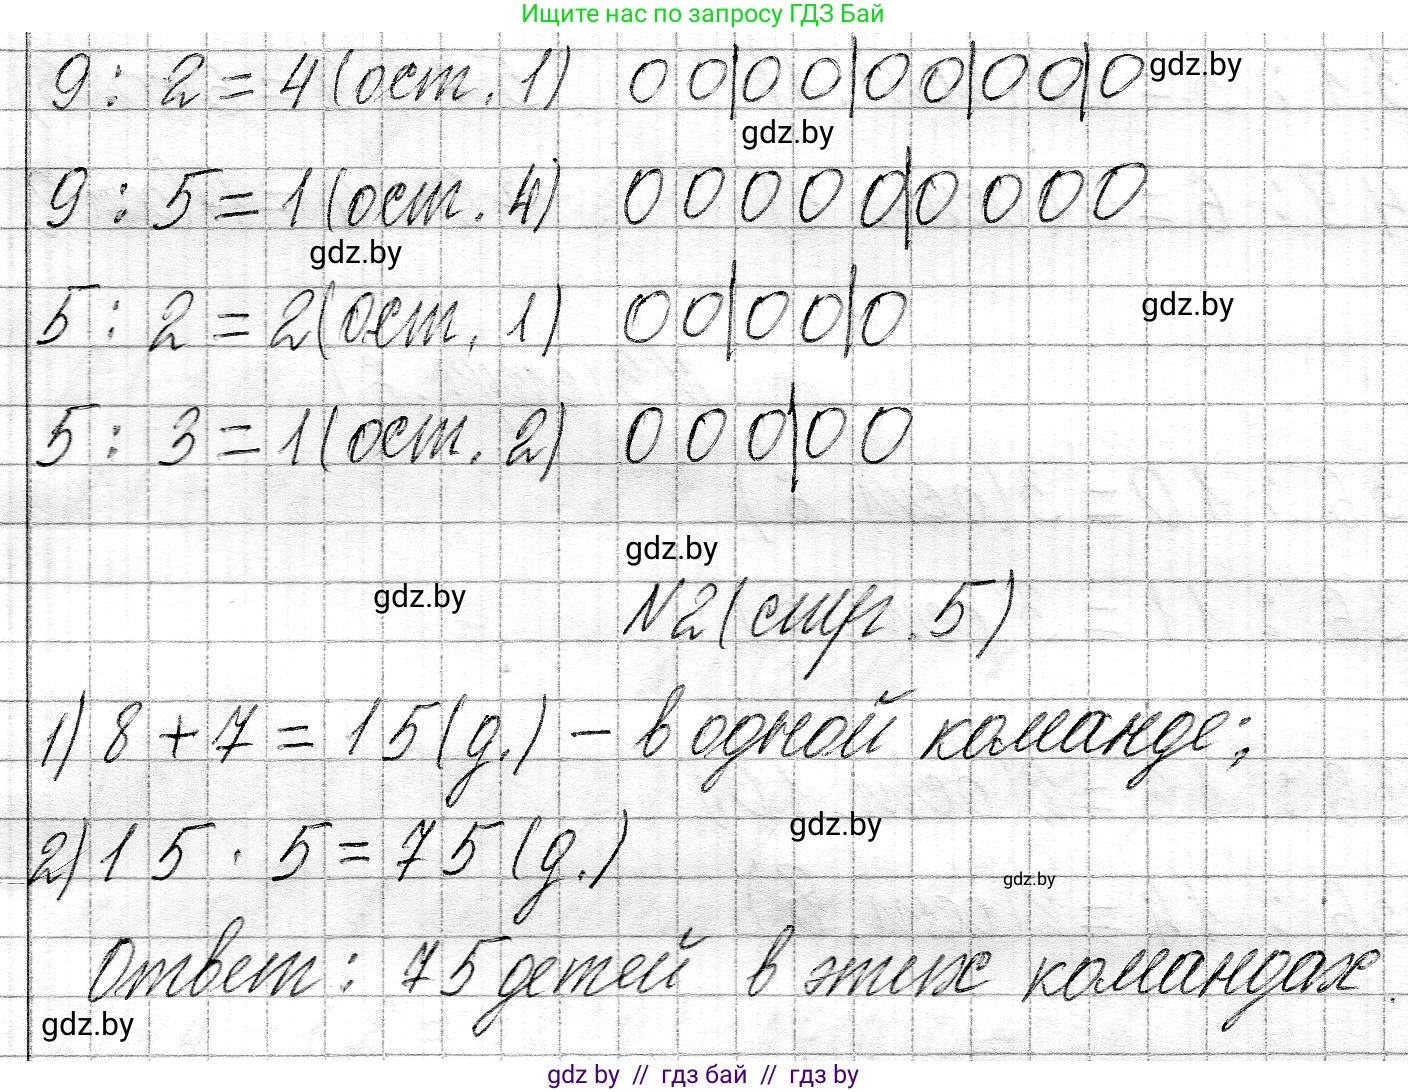 Ищите нас по запросу ГДЗ Бай
9 : 2 = 4 (ост. 1) 00|00|00|00|0 gdz.by
gdz.by
9 : 5 = 1 (ост. 4) 00000|0000
gdz.by
5 : 2 = 2 (ост. 1) 00|00|0 gdz.by
5 : 3 = 1 (ост. 2) 000|00
gdz.by
gdz.by
N2 (стр. 5)
1) 8 + 7 = 15 (д.) – в одной команде;
gdz.by
2) 15 · 5 = 75 (д.)
gdz.by
Ответ: 75 детей в этих командах.
gdz.by
gdz by // гдз бай // гдз by